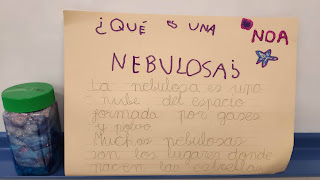 ¿QUÉ ES UNA
NOA
NEBULOSA?
La nebulosa es una
nube del espacio
formada por gases
y polvo.
Muchas nebulosas
son los lugares donde
nacen las estrellas